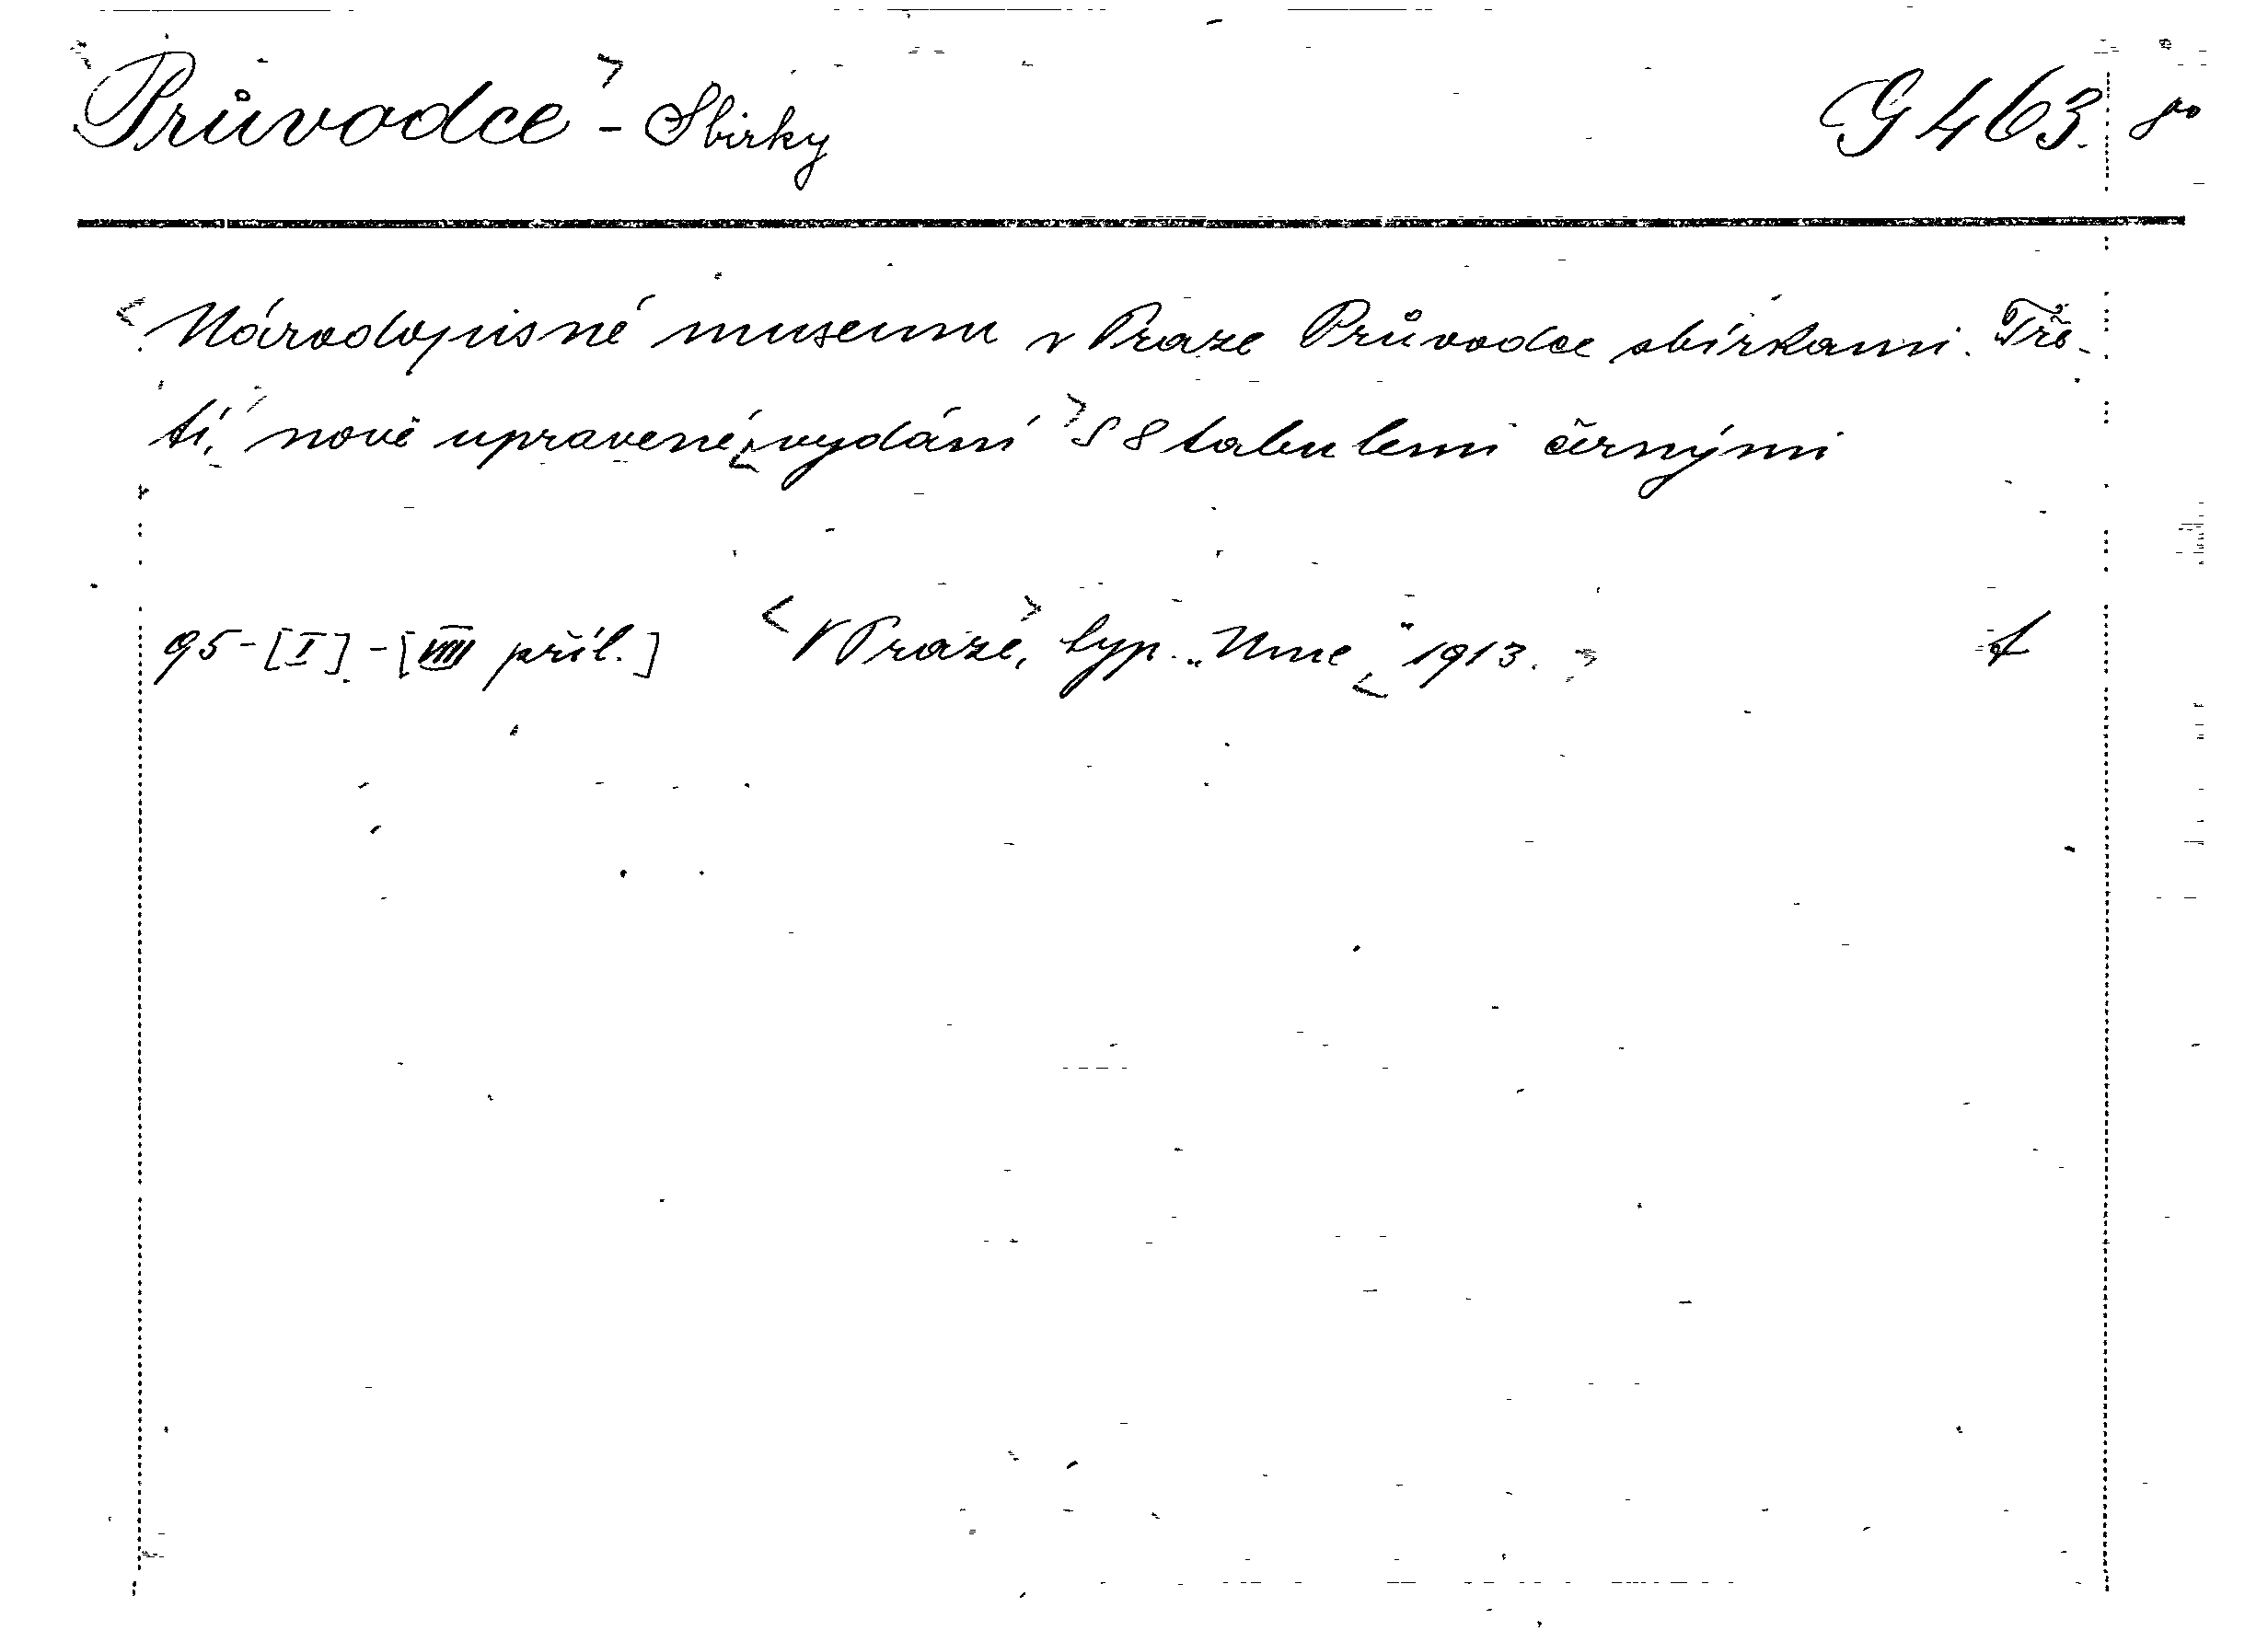 Průvodce - Sbírky G 463. 8°
Národopisné museum v Praze Průvodce sbírkami. Tře-
tí, nově upravené vydání S 8 tabulemi černými
95-[I]-[VIII příl.] V Praze, typ. „Unie“ 1913.